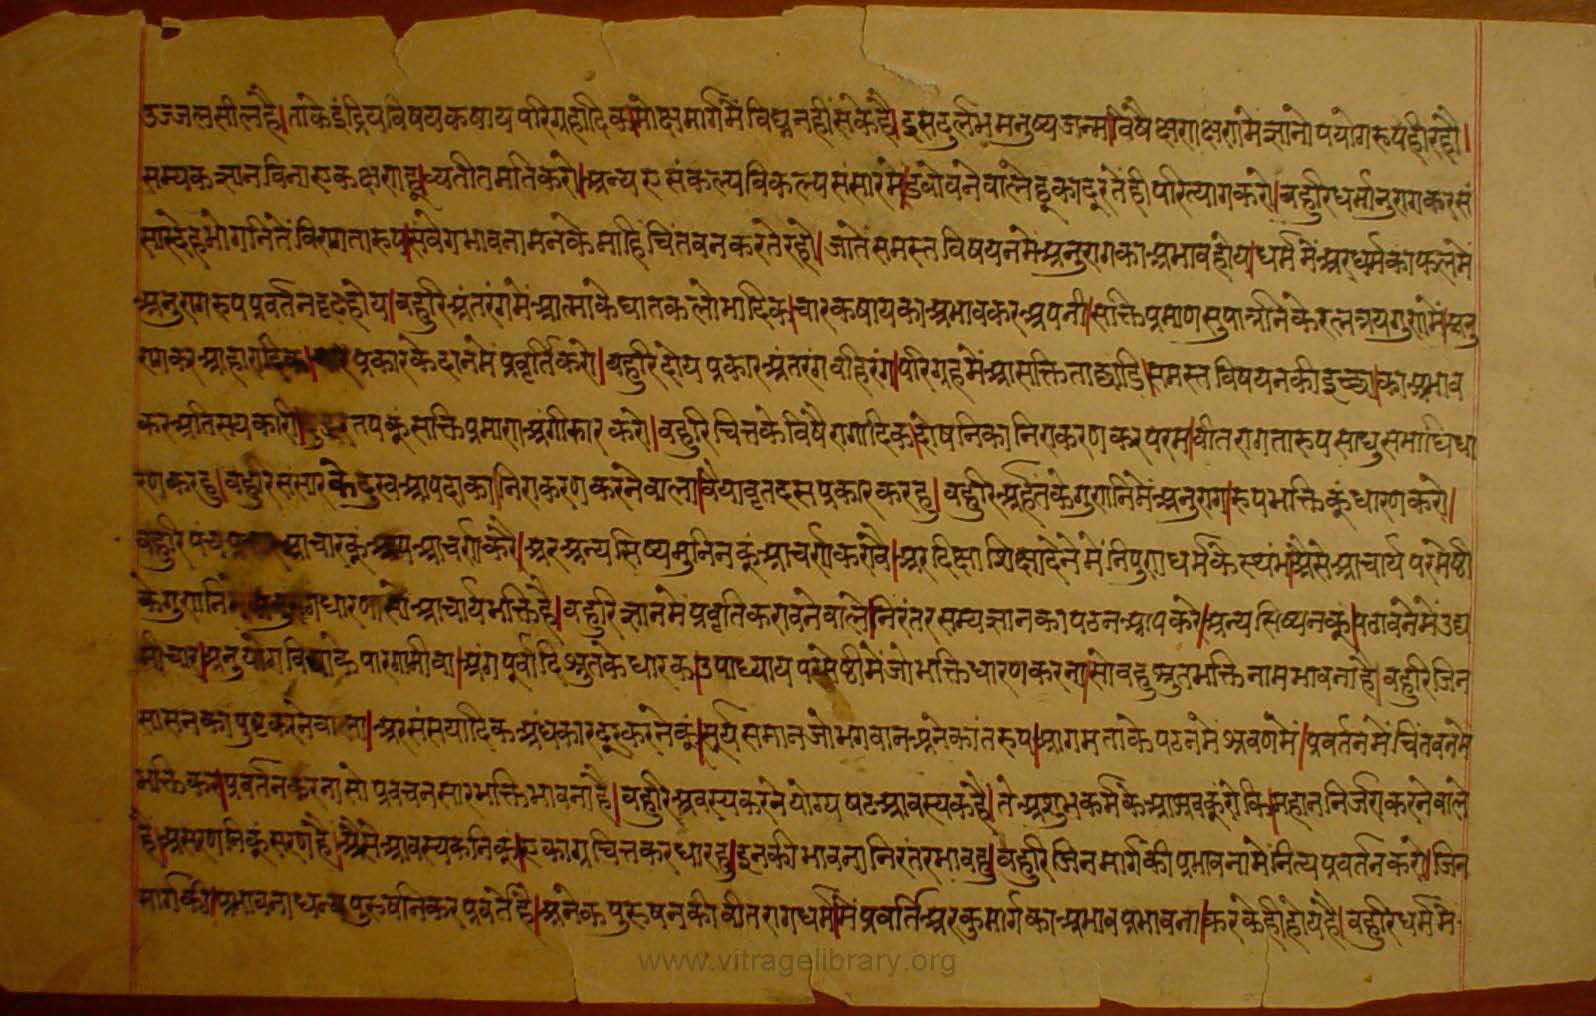 उज्जलसीलहै।ताकेइंद्रियविषयकषायपरिग्रहादिक।मोक्षमार्गमैंविघ्ननहींसकेहै।इसदुर्लभमनुष्यजन्म।विषैक्षणक्षणमेंज्ञानोपयोगरूपहीरहौ।
सम्यकज्ञानविनाएकक्षणहू।व्यतीतमतिकरो।अन्यएसंकल्पविकल्पसंसारमे।डवोवनेवालेहूकादूरतेंहीपरित्यागकरो।बहुरिधर्मानुरागकरसं
सारदेहभोगनितेंविरागतारूप।संवेगभावनामनकेमाहिंचिंतवनकरतेरहो।जातेंसमस्तविषयनमेंअनुरागकाअभावहोय।धर्ममेंअरधर्मकाफलमें
अनुरागरूपप्रवर्तनदृढहोय।बहुरिअंतरंगमेंआत्माकेघातकलोभादिक।चारकषायकाअभावकरअपनी।सक्तिप्रमाणसुपात्रनिकेरत्नत्रयगुणमें।अनु
रागकरआहारादिक।प्रकारकेदानमेंप्रवृर्तिकरो।बहुरिदोयप्रकारअंतरंगवहिरंग।परिग्रहमेंआसक्तिताछाडि।समस्तविषयनकीइच्छा।काअभाव
करअतिसयकारी।तपकूंसक्तिप्रमाणअंगीकारकरो।बहुरिचित्तकेविषैरागादिक।दोषनिकानिराकरणकरपरम।वीतरागतारूपसाधुसमाधिधा
रणकरहु।बहुरिसंसारकेदुखआपदाका।निराकरणकरनेवाला।वैयावृतदसप्रकारकरहु।बहुरिअर्हंतकेगुणनिमेंअनुराग।रूपभक्तिकूंधारणकरो।
बहुरिपंचआचारकूंआपआचर्णकरै।अरअन्यसिष्यमुनिनकूंआचर्णकरावै।अरदिक्षाशिक्षादेनेमेंनिपुणधर्मकेस्थंभ।अैसेआचार्यपरमेष्ठी
केगुणनिमेंअनुरागधारणासोआचार्यभक्तिहै।बहुरिज्ञानमेंप्रवृतिकरावनेवाले।निरंतरसम्यज्ञानकापठनआपकरे।अन्यसिष्यनकूं।पठावनेमेंउद्य
मीचार।अनुयोगविद्याकेपारगामीवा।अंगपूर्वादिश्रुतकेधारक।उपाध्यायपरमेष्ठीमेंजोभक्तिधारणकरना।सोबहुश्रुतभक्तिनामभावनाहै।बहुरिजिन
सासनकापुष्टकरनेवाला।अरसंसयादिकअंधकारदूरकरनेकूं।सूर्यसमानजोभगवानअनेकांतरूप।आगमताकेपठनमेंश्रवणमें।प्रवर्तनमेंचिंतवनमें
भक्तिकर।प्रवर्तनकरनासोप्रवचनसारभक्तिभावनाहै।बहुरिअवस्यकरनेयोग्यषटआवस्यकहै।तेअशुभकर्मकेआश्रवकूंरोकि।महाननिर्जराकरनेवाले
है।असरणनिकूंसरणहै।अैसेआवस्यकनिकूं।एकाग्रचित्तकरधारहु।इनकीभावनानिरंतरभावहु।बहुरिजिनमार्गकीप्रभावनामेंनित्यप्रवर्तनकरो।जिन
मार्गकी।प्रभावनाधन्यपुरुषनिकरप्रवर्तेहै।अनेकपुरुषनकीवीतरागधर्ममेंप्रवर्तिअरकुमार्गकाअभावप्रभावना।करकेहीहोयहै।बहुरिधर्ममें
www.vitragelibrary.org